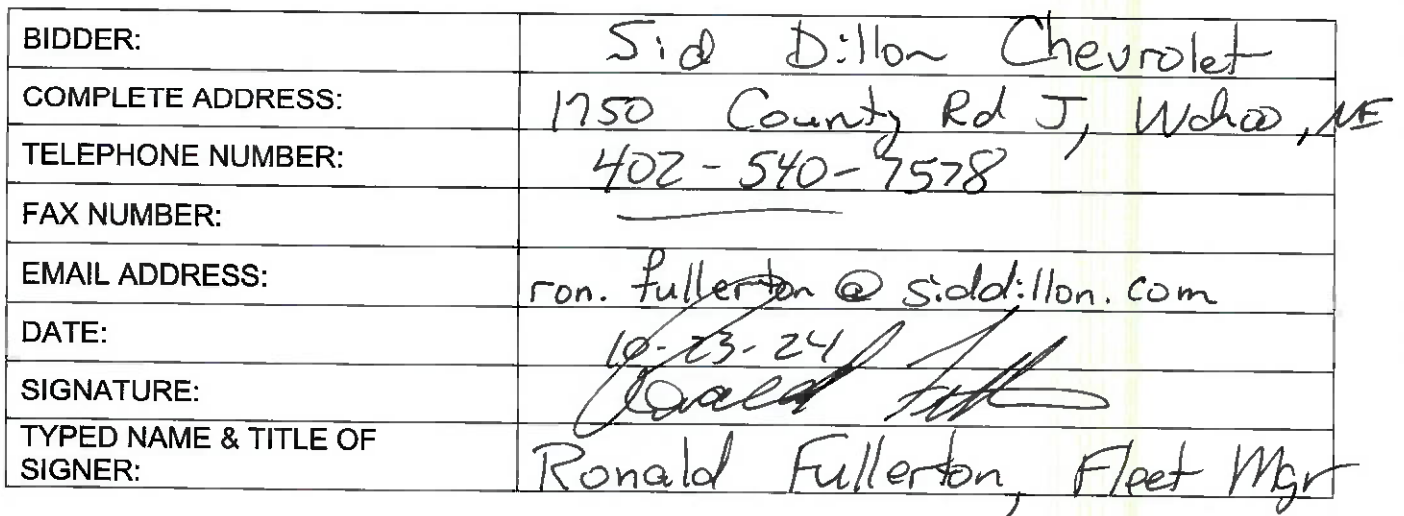 BIDDER: Sid Dillon Chevrolet
COMPLETE ADDRESS: 1750 County Rd J, Wahoo, NE
TELEPHONE NUMBER: 402-540-7578
FAX NUMBER: —
EMAIL ADDRESS: ron.fullerton@siddillon.com
DATE: 10-23-24
SIGNATURE: Ronald
TYPED NAME & TITLE OF
SIGNER: Ronald Fullerton, Fleet Mgr